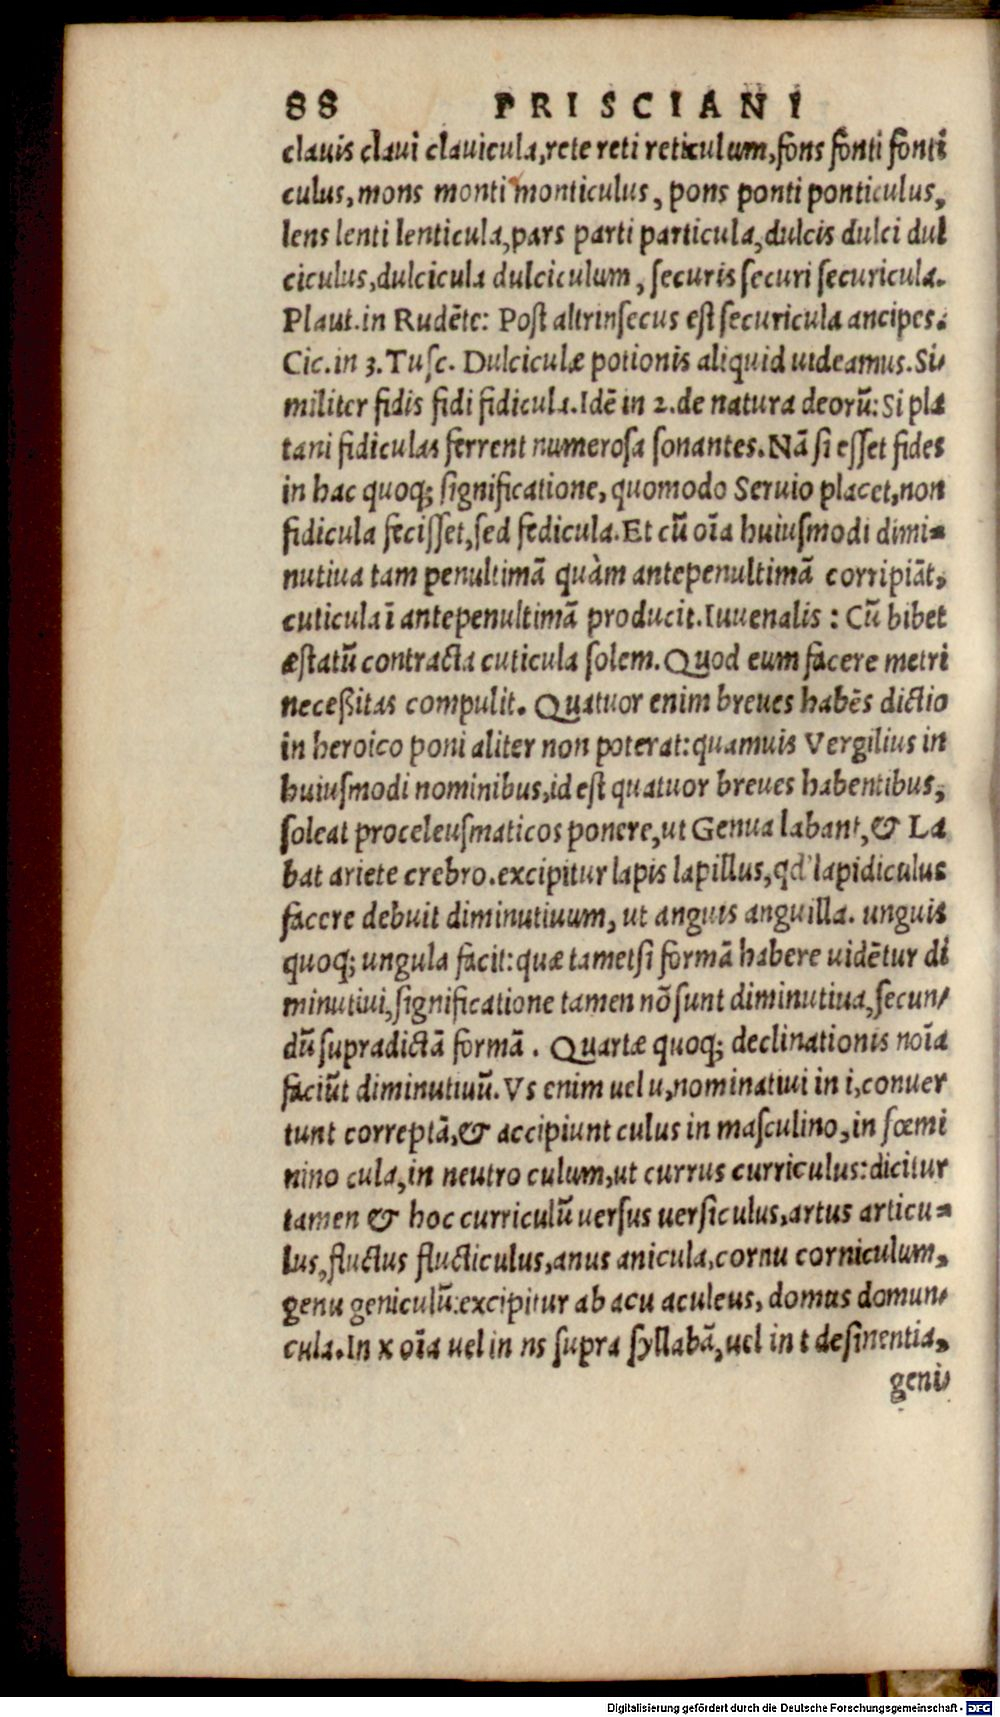 88 PRISCIANI
clauis claui clauicula,rete reti reticulum,fons fonti fonti
culus,mons monti monticulus, pons ponti ponticulus,
lens lenti lenticula,pars parti particula,dulcis dulci dul
ciculus,dulcicula dulciculum, securis securi securicula.
Plaut.in Rudēte: Post altrinsecus est securicula ancipes.
Cic.in 3.Tusc. Dulciculæ potionis aliquid uideamus.Si-
militer fidis fidi fidicula.Idē in 2.de natura deorū:Si pla
tani fidiculas ferrent numerosa sonantes.Nā si esset fides
in hac quoq; significatione, quomodo Seruio placet,non
fidicula fecisset,sed fedicula.Et cū oīa huiusmodi dimi-
nutiua tam penultimā quàm antepenultimā corripiāt,
cuticula ī antepenultimā producit.Iuuenalis : Cū bibet
æstatū contracta cuticula solem.Quod eum facere metri
neceßitas compulit. Quatuor enim breues habēs dictio
in heroico poni aliter non poterat:quamuis Vergilius in
huiusmodi nominibus,id est quatuor breues habentibus,
soleat proceleusmaticos ponere,ut Genua labant,& La
bat ariete crebro.excipitur lapis lapillus,qd' lapidiculus
facere debuit diminutiuum, ut anguis anguilla. unguis
quoq; ungula facit:quæ tametsi formā habere uidētur di
minutiui,significatione tamen nō sunt diminutiua,secun-
dū supradictā formā . Quartæ quoq; declinationis noīa
faciūt diminutiuū.Vs enim uel u,nominatiui in i,conuer
tunt correptā,& accipiunt culus in masculino,in fœmi
nino cula,in neutro culum,ut currus curriculus:dicitur
tamen & hoc curriculū uersus uersiculus,artus articu-
lus,fluctus flucticulus,anus anicula,cornu corniculum,
genu geniculū:excipitur ab acu aculeus, domus domun-
cula.In x oīa uel in ns supra syllabā,uel in t desinentia,
geni-
Digitalisierung gefördert durch die Deutsche Forschungsgemeinschaft - DFG